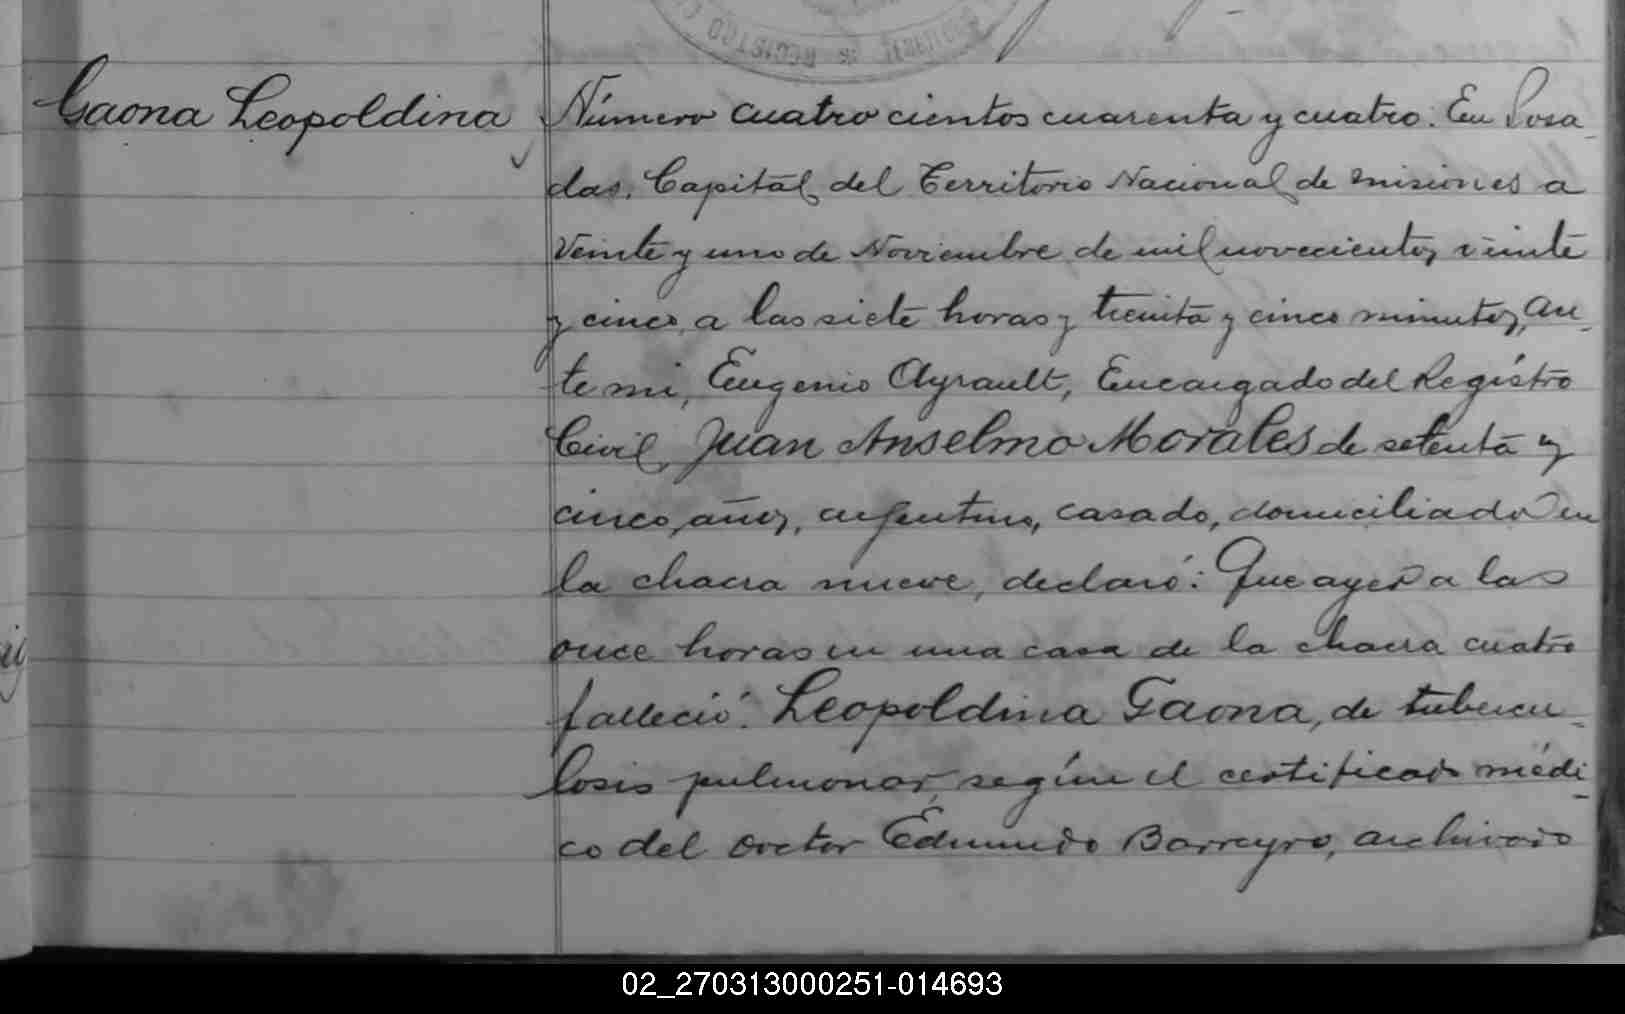 REGISTRO
Gaona Leopoldina
Número cuatro cientos cuarenta y cuatro. En Posa-
das, Capital del Territorio Nacional de Misiones a
veinte y uno de Noviembre de mil novecientos veinte
y cinco, a las siete horas y treinta y cinco minutos, an-
te mi, Eugenio Ayrault, Encargado del Registro
Civil, Juan Anselmo Morales de setenta y
cinco años, argentino, casado, domiciliado en
la chacra nueve, declaró: Que ayer a las
once horas en una casa de la chacra cuatro
falleció: Leopoldina Gaona, de tubercu-
losis pulmonar, según el certificado médi-
co del doctor Edmundo Barreyro, archivado
02_270313000251-014693